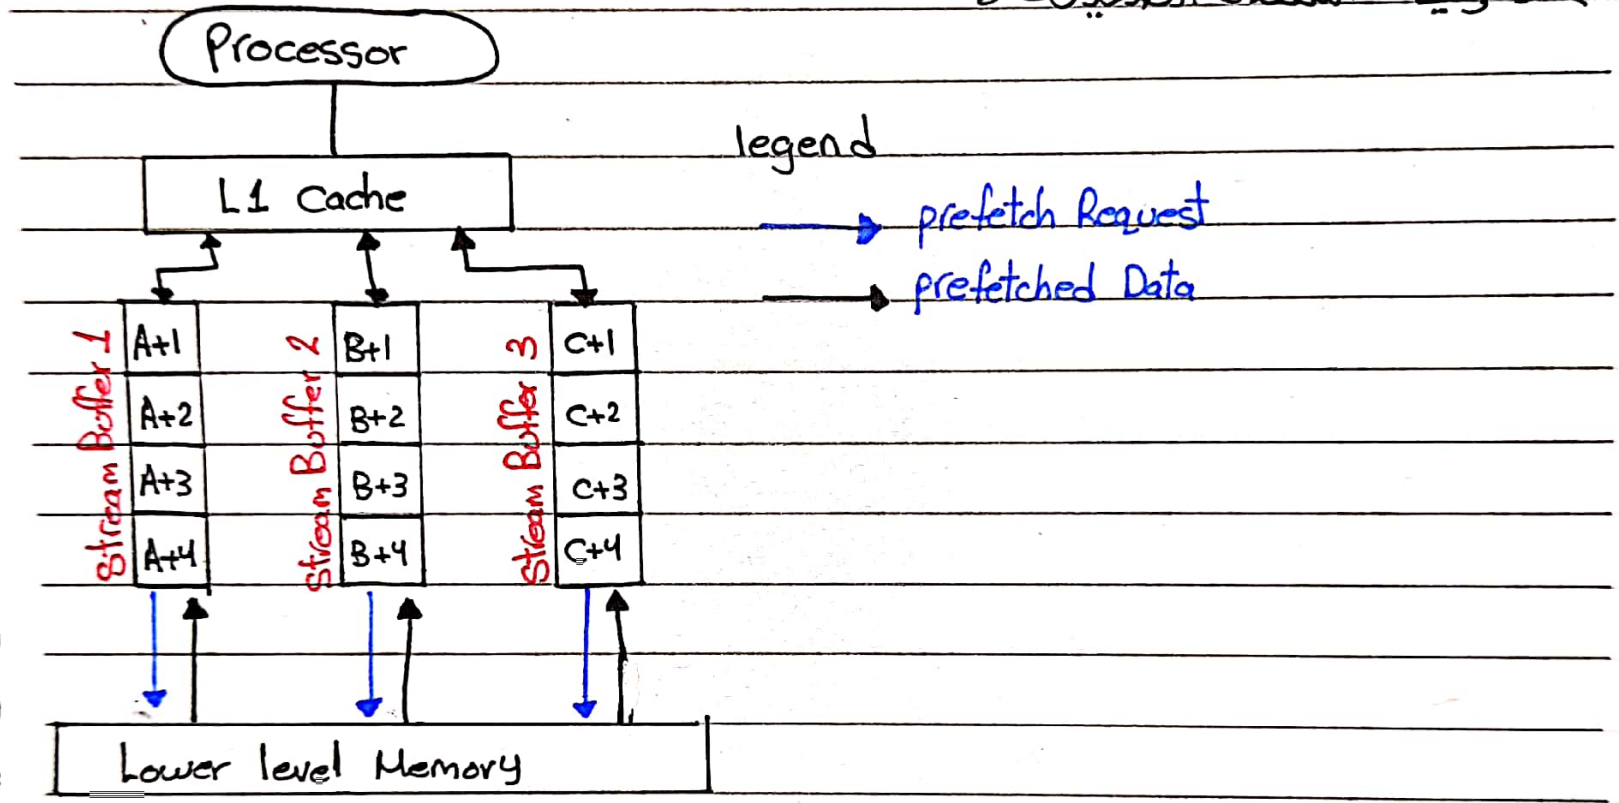 Processor
legend
L1 Cache
prefetch Request
prefetched Data
Stream Buffer 1
A+1
A+2
A+3
A+4
Stream Buffer 2
B+1
B+2
B+3
B+4
Stream Buffer 3
C+1
C+2
C+3
C+4
Lower level Memory